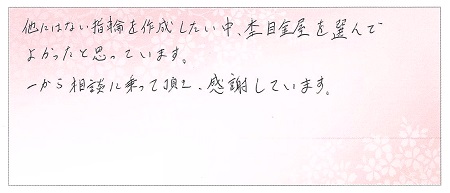 他にはない指輪を作成したい中、杢目金屋を選んで
よかったと思っています。
一から相談に乗って頂き、感謝しています。